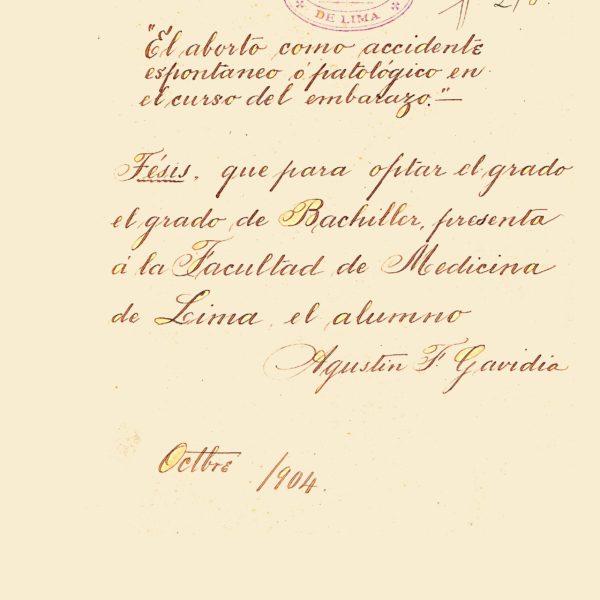 DE LIMA
"El aborto como accidente
espontaneo ó patológico en
el curso del embarazo."—
Tésis, que para optar el grado
el grado de Bachiller, presenta
á la Facultad de Medicina
de Lima, el alumno
Agustin F. Gavidia
Octbre /904.